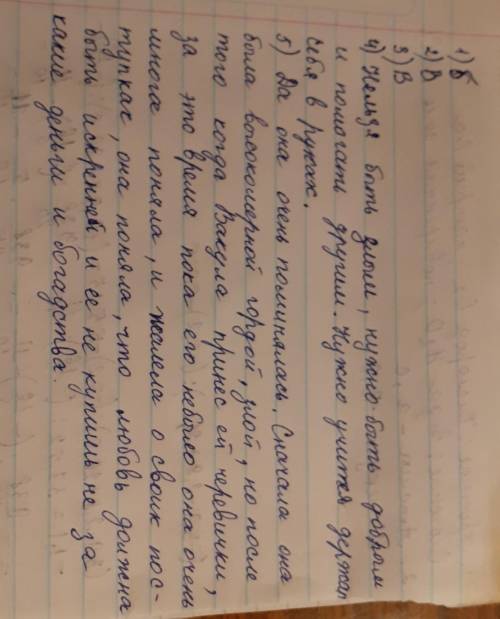 1) б
2) В
3) В
4) Нельзя быть злым, нужно быть добрым
и помогать другим. Нужно учится держат
себя в руках.
5) Да она очень поминялась. Сначала она
была высокомерной гордой, злой, но после
того когда Вакула принес ей черевички,
за это время пока его небыло она очень
многа поняла, и жалела о своих пос-
тупках, она поняла, что любовь должна
быть искренней и ее не купишь не за
какие деньги и богадства.